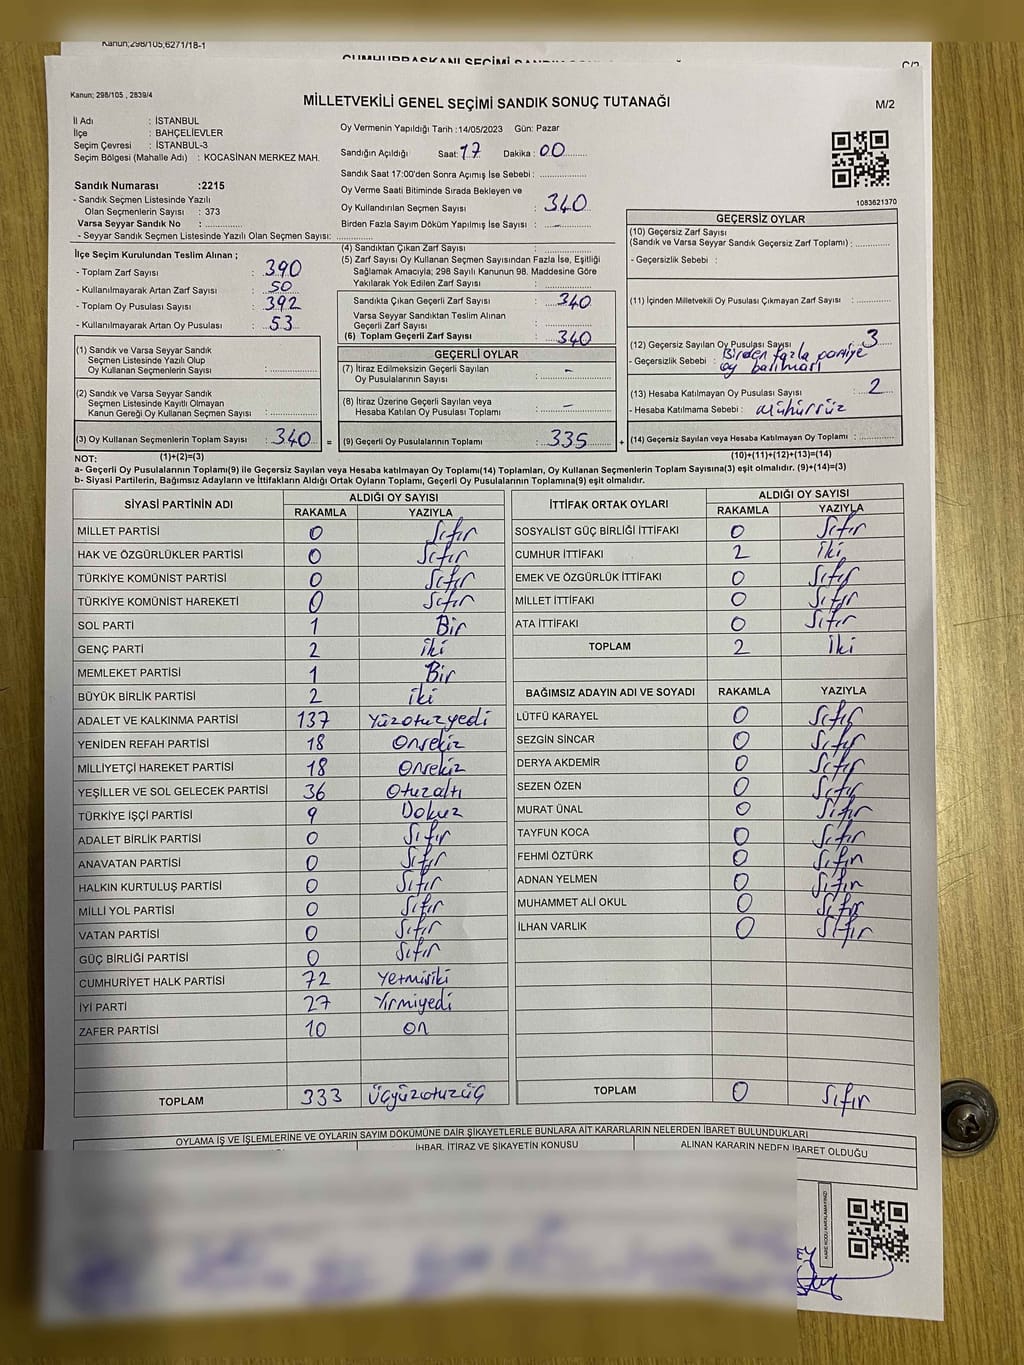 Kanun;298/105,6271/18-1
CUMHURBAŞKANI SEÇİMİ
C/2
Kanun; 298/105 , 2839/4
MİLLETVEKİLİ GENEL SEÇİMİ SANDIK SONUÇ TUTANAĞI
M/2
İl Adı : İSTANBUL
İlçe : BAHÇELİEVLER
Seçim Çevresi : İSTANBUL-3
Seçim Bölgesi (Mahalle Adı) : KOCASİNAN MERKEZ MAH.
Oy Vermenin Yapıldığı Tarih :14/05/2023 Gün: Pazar
Sandığın Açıldığı Saat: 17 Dakika : 00
Sandık Saat 17:00'den Sonra Açımış İse Sebebi :
Oy Verme Saati Bitiminde Sırada Bekleyen ve
Oy Kullandırılan Seçmen Sayısı : 340
Birden Fazla Sayım Döküm Yapılmış İse Sayısı : -
1083621370
Sandık Numarası :2215
- Sandık Seçmen Listesinde Yazılı
Olan Seçmenlerin Sayısı : 373
Varsa Seyyar Sandık No :
- Seyyar Sandık Seçmen Listesinde Yazılı Olan Seçmen Sayısı:
İlçe Seçim Kurulundan Teslim Alınan ;
- Toplam Zarf Sayısı : 390
- Kullanılmayarak Artan Zarf Sayısı : 50
- Toplam Oy Pusulası Sayısı : 392
- Kullanılmayarak Artan Oy Pusulası : 53
(1) Sandık ve Varsa Seyyar Sandık
Seçmen Listesinde Yazılı Olup
Oy Kullanan Seçmenlerin Sayısı :
(2) Sandık ve Varsa Seyyar Sandık
Seçmen Listesinde Kayıtlı Olmayan
Kanun Gereği Oy Kullanan Seçmen Sayısı :
(3) Oy Kullanan Seçmenlerin Toplam Sayısı : 340 =
(4) Sandıktan Çıkan Zarf Sayısı :
(5) Zarf Sayısı Oy Kullanan Seçmen Sayısından Fazla İse, Eşitliği
Sağlamak Amacıyla; 298 Sayılı Kanunun 98. Maddesine Göre
Yakılarak Yok Edilen Zarf Sayısı :
Sandıkta Çıkan Geçerli Zarf Sayısı : 340
Varsa Seyyar Sandıktan Teslim Alınan
Geçerli Zarf Sayısı :
(6) Toplam Geçerli Zarf Sayısı : 340
GEÇERLİ OYLAR
(7) İtiraz Edilmeksizin Geçerli Sayılan
Oy Pusulalarının Sayısı : -
(8) İtiraz Üzerine Geçerli Sayılan veya
Hesaba Katılan Oy Pusulası Toplamı : -
(9) Geçerli Oy Pusulalarının Toplamı : 335 +
GEÇERSİZ OYLAR
(10) Geçersiz Zarf Sayısı
(Sandık ve Varsa Seyyar Sandık Geçersiz Zarf Toplamı) :
- Geçersizlik Sebebi :
(11) İçinden Milletvekili Oy Pusulası Çıkmayan Zarf Sayısı :
(12) Geçersiz Sayılan Oy Pusulası Sayısı : 3
- Geçersizlik Sebebi : Birden fazla partiye
oy basılması
(13) Hesaba Katılmayan Oy Pusulası Sayısı : 2
- Hesaba Katılmama Sebebi : Mühürsüz
(14) Geçersiz Sayılan veya Hesaba Katılmayan Oy Toplamı :
NOT: (1)+(2)=(3)
(10)+(11)+(12)+(13)=(14)
a- Geçerli Oy Pusulalarının Toplamı(9) ile Geçersiz Sayılan veya Hesaba katılmayan Oy Toplamı(14) Toplamları, Oy Kullanan Seçmenlerin Toplam Sayısına(3) eşit olmalıdır. (9)+(14)=(3)
b- Siyasi Partilerin, Bağımsız Adayların ve İttifakların Aldığı Ortak Oyların Toplamı, Geçerli Oy Pusulalarının Toplamına(9) eşit olmalıdır.
SİYASİ PARTİNİN ADI ALDIĞI OY SAYISI
RAKAMLA YAZIYLA
MİLLET PARTİSİ 0 Sıfır
HAK VE ÖZGÜRLÜKLER PARTİSİ 0 Sıfır
TÜRKİYE KOMÜNİST PARTİSİ 0 Sıfır
TÜRKİYE KOMÜNİST HAREKETİ 0 Sıfır
SOL PARTİ 1 Bir
GENÇ PARTİ 2 iki
MEMLEKET PARTİSİ 1 Bir
BÜYÜK BİRLİK PARTİSİ 2 iki
ADALET VE KALKINMA PARTİSİ 137 Yüzotuzyedi
YENİDEN REFAH PARTİSİ 18 Onsekiz
MİLLİYETÇİ HAREKET PARTİSİ 18 Onsekiz
YEŞİLLER VE SOL GELECEK PARTİSİ 36 Otuzaltı
TÜRKİYE İŞÇİ PARTİSİ 9 Dokuz
ADALET BİRLİK PARTİSİ 0 Sıfır
ANAVATAN PARTİSİ 0 Sıfır
HALKIN KURTULUŞ PARTİSİ 0 Sıfır
MİLLİ YOL PARTİSİ 0 Sıfır
VATAN PARTİSİ 0 Sıfır
GÜÇ BİRLİĞİ PARTİSİ 0 Sıfır
CUMHURİYET HALK PARTİSİ 72 Yetmişiki
İYİ PARTİ 27 Yirmiyedi
ZAFER PARTİSİ 10 on
TOPLAM 333 Üçyüzotuzüç
İTTİFAK ORTAK OYLARI ALDIĞI OY SAYISI
RAKAMLA YAZIYLA
SOSYALİST GÜÇ BİRLİĞİ İTTİFAKI 0 Sıfır
CUMHUR İTTİFAKI 2 iki
EMEK VE ÖZGÜRLÜK İTTİFAKI 0 Sıfır
MİLLET İTTİFAKI 0 Sıfır
ATA İTTİFAKI 0 Sıfır
TOPLAM 2 iki
BAĞIMSIZ ADAYIN ADI VE SOYADI RAKAMLA YAZIYLA
LÜTFÜ KARAYEL 0 Sıfır
SEZGİN SİNCAR 0 Sıfır
DERYA AKDEMİR 0 Sıfır
SEZEN ÖZEN 0 Sıfır
MURAT ÜNAL 0 Sıfır
TAYFUN KOCA 0 Sıfır
FEHMİ ÖZTÜRK 0 Sıfır
ADNAN YELMEN 0 Sıfır
MUHAMMET ALİ OKUL 0 Sıfır
İLHAN VARLIK 0 Sıfır
TOPLAM 0 Sıfır
OYLAMA İŞ VE İŞLEMLERİNE VE OYLARIN SAYIM DÖKÜMÜNE DAİR ŞİKAYETLERLE BUNLARA AİT KARARLARIN NELERDEN İBARET BULUNDUKLARI
İHBAR, İTİRAZ VE ŞİKAYETİN KONUSU ALINAN KARARIN NEDEN İBARET OLDUĞU
KARE KODU KARALAMAYINIZ!
EY